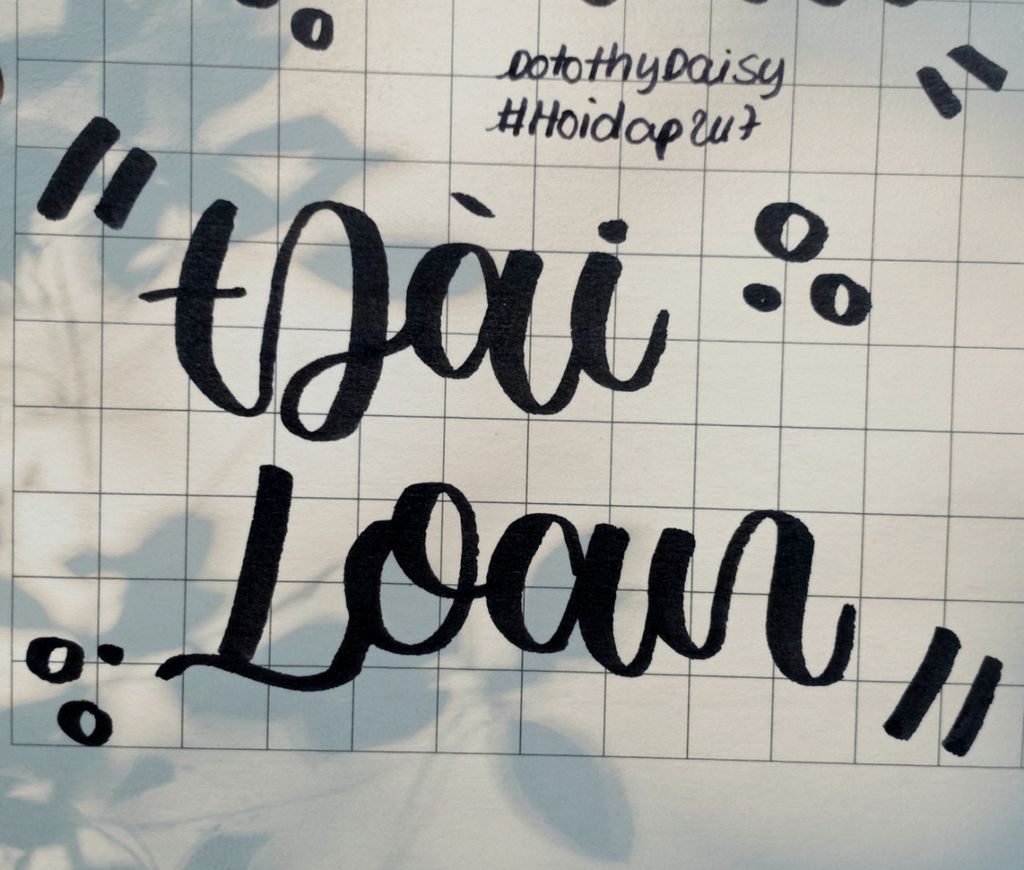 DotothyDaisy
#Hoidap247
"Đài
Loan"